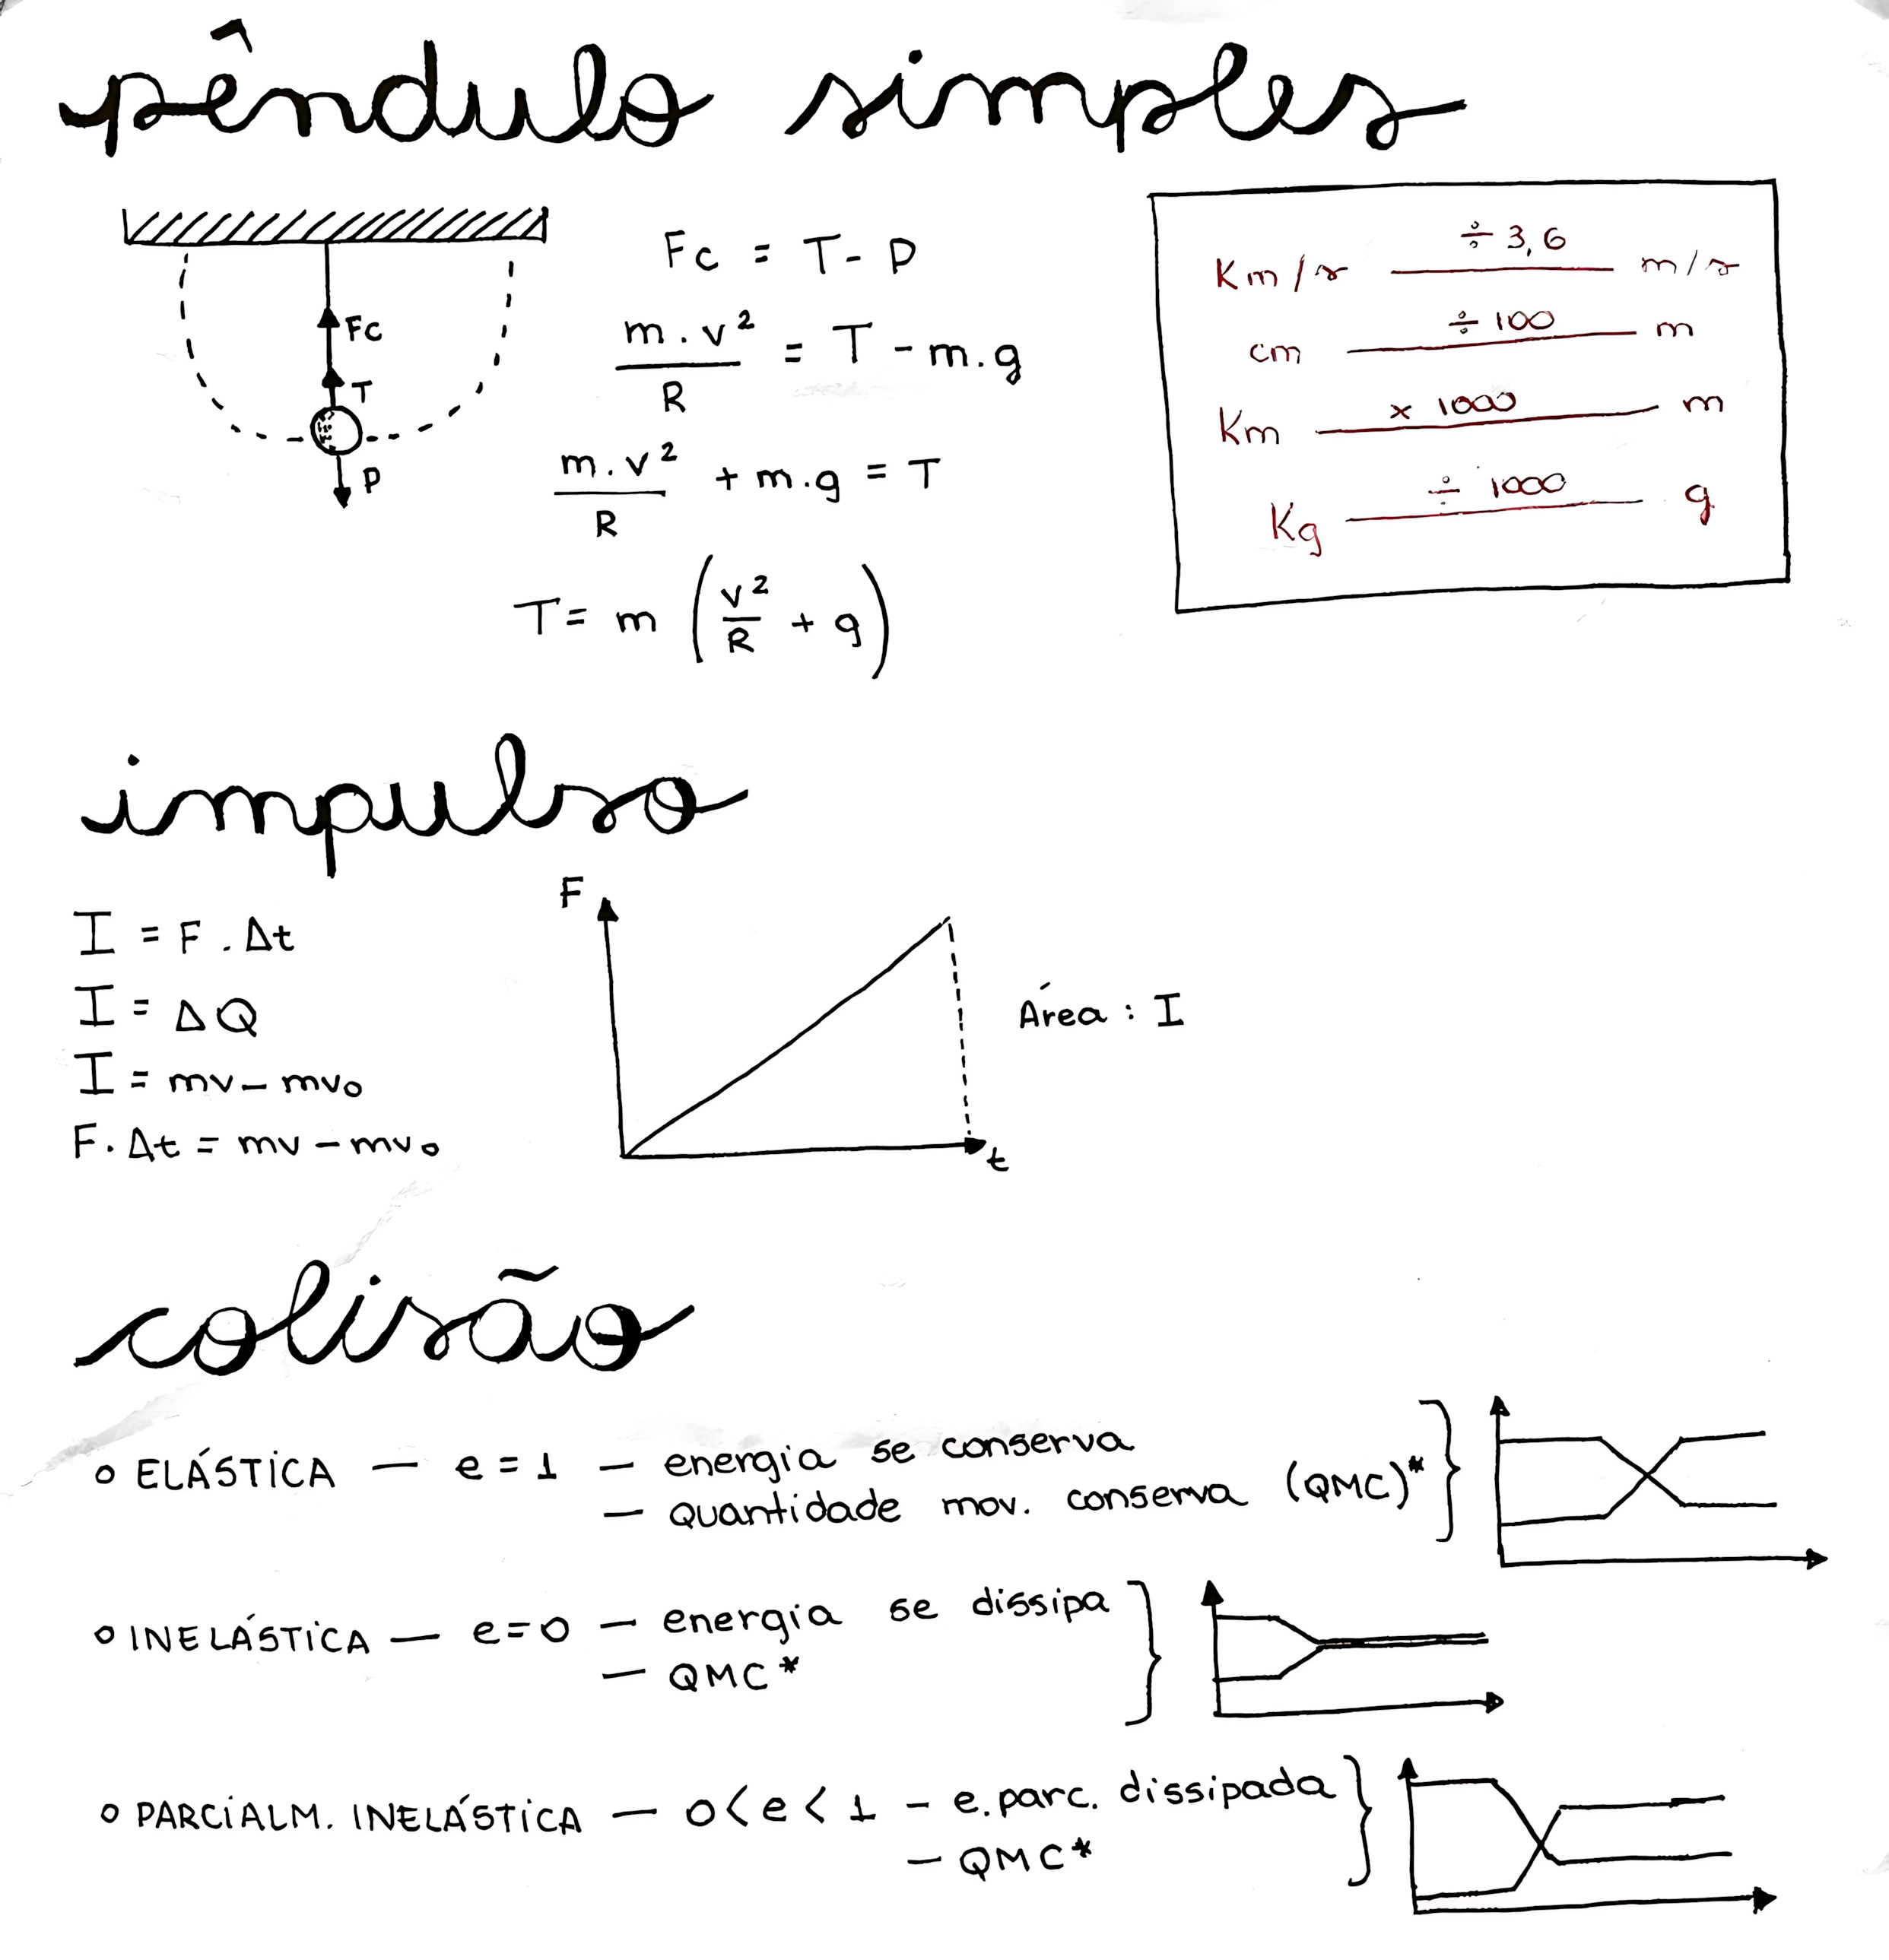 pêndulo simples
Fc
T
P
Fc = T - P
m . v² / R = T - m.g
m . v² / R + m.g = T
T = m ( v² / R + g )
Km/s ÷ 3,6 m/s
cm ÷ 100 m
Km x 1000 m
Kg ÷ 1000 g
impulso
I = F . Δt
I = ΔQ
I = mv - mv₀
F. Δt = mv - mv₀
F
t
Área : I
colisão
o ELÁSTICA — e = 1 — energia se conserva
— quantidade mov. conserva (QMC)*
o INELÁSTICA — e = 0 — energia se dissipa
— QMC*
o PARCIALM. INELÁSTICA — 0 < e < 1 — e. parc. dissipada
— QMC*